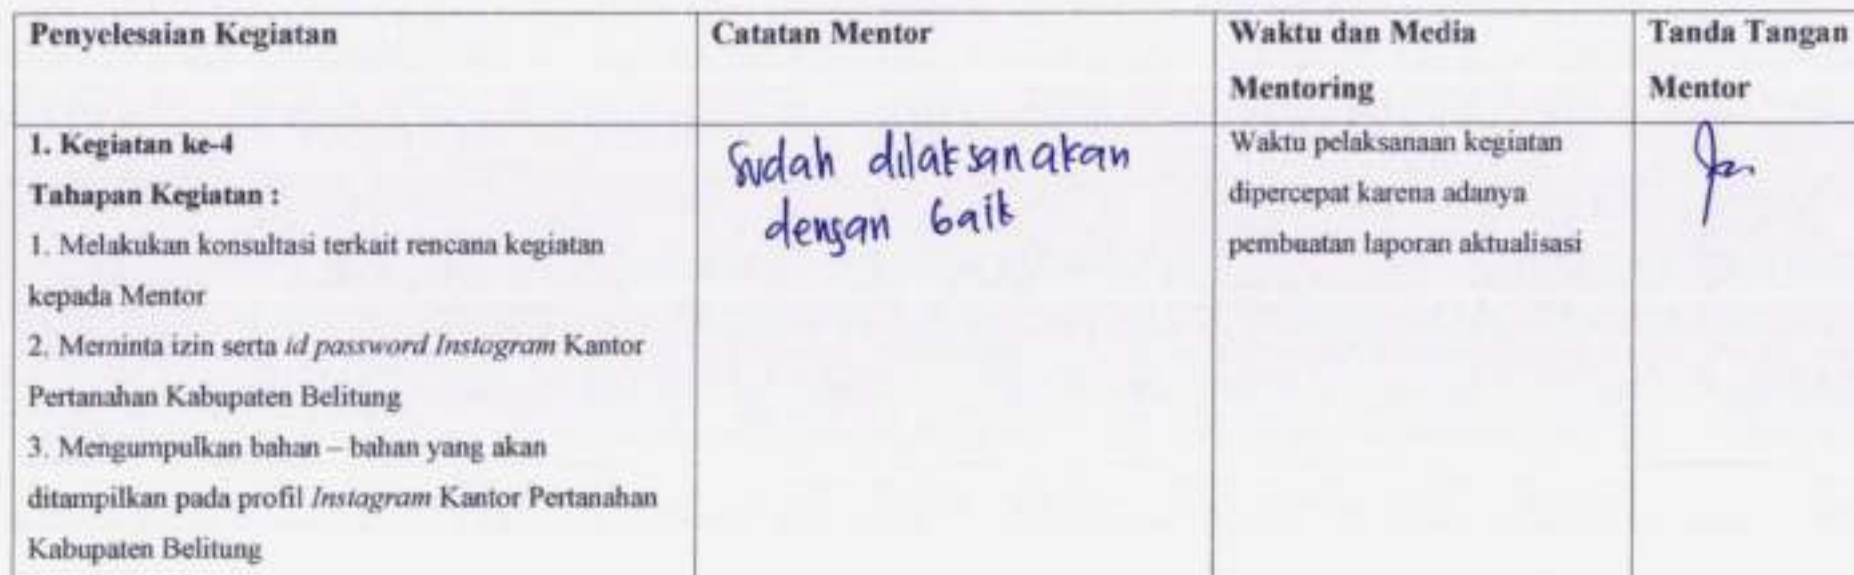 Penyelesaian Kegiatan
Catatan Mentor
Waktu dan Media
Mentoring
Tanda Tangan
Mentor
1. Kegiatan ke-4
Tahapan Kegiatan :
1. Melakukan konsultasi terkait rencana kegiatan
kepada Mentor
2. Meminta izin serta id password Instagram Kantor
Pertanahan Kabupaten Belitung
3. Mengumpulkan bahan – bahan yang akan
ditampilkan pada profil Instagram Kantor Pertanahan
Kabupaten Belitung
Sudah dilaksanakan
dengan baik
Waktu pelaksanaan kegiatan
dipercepat karena adanya
pembuatan laporan aktualisasi